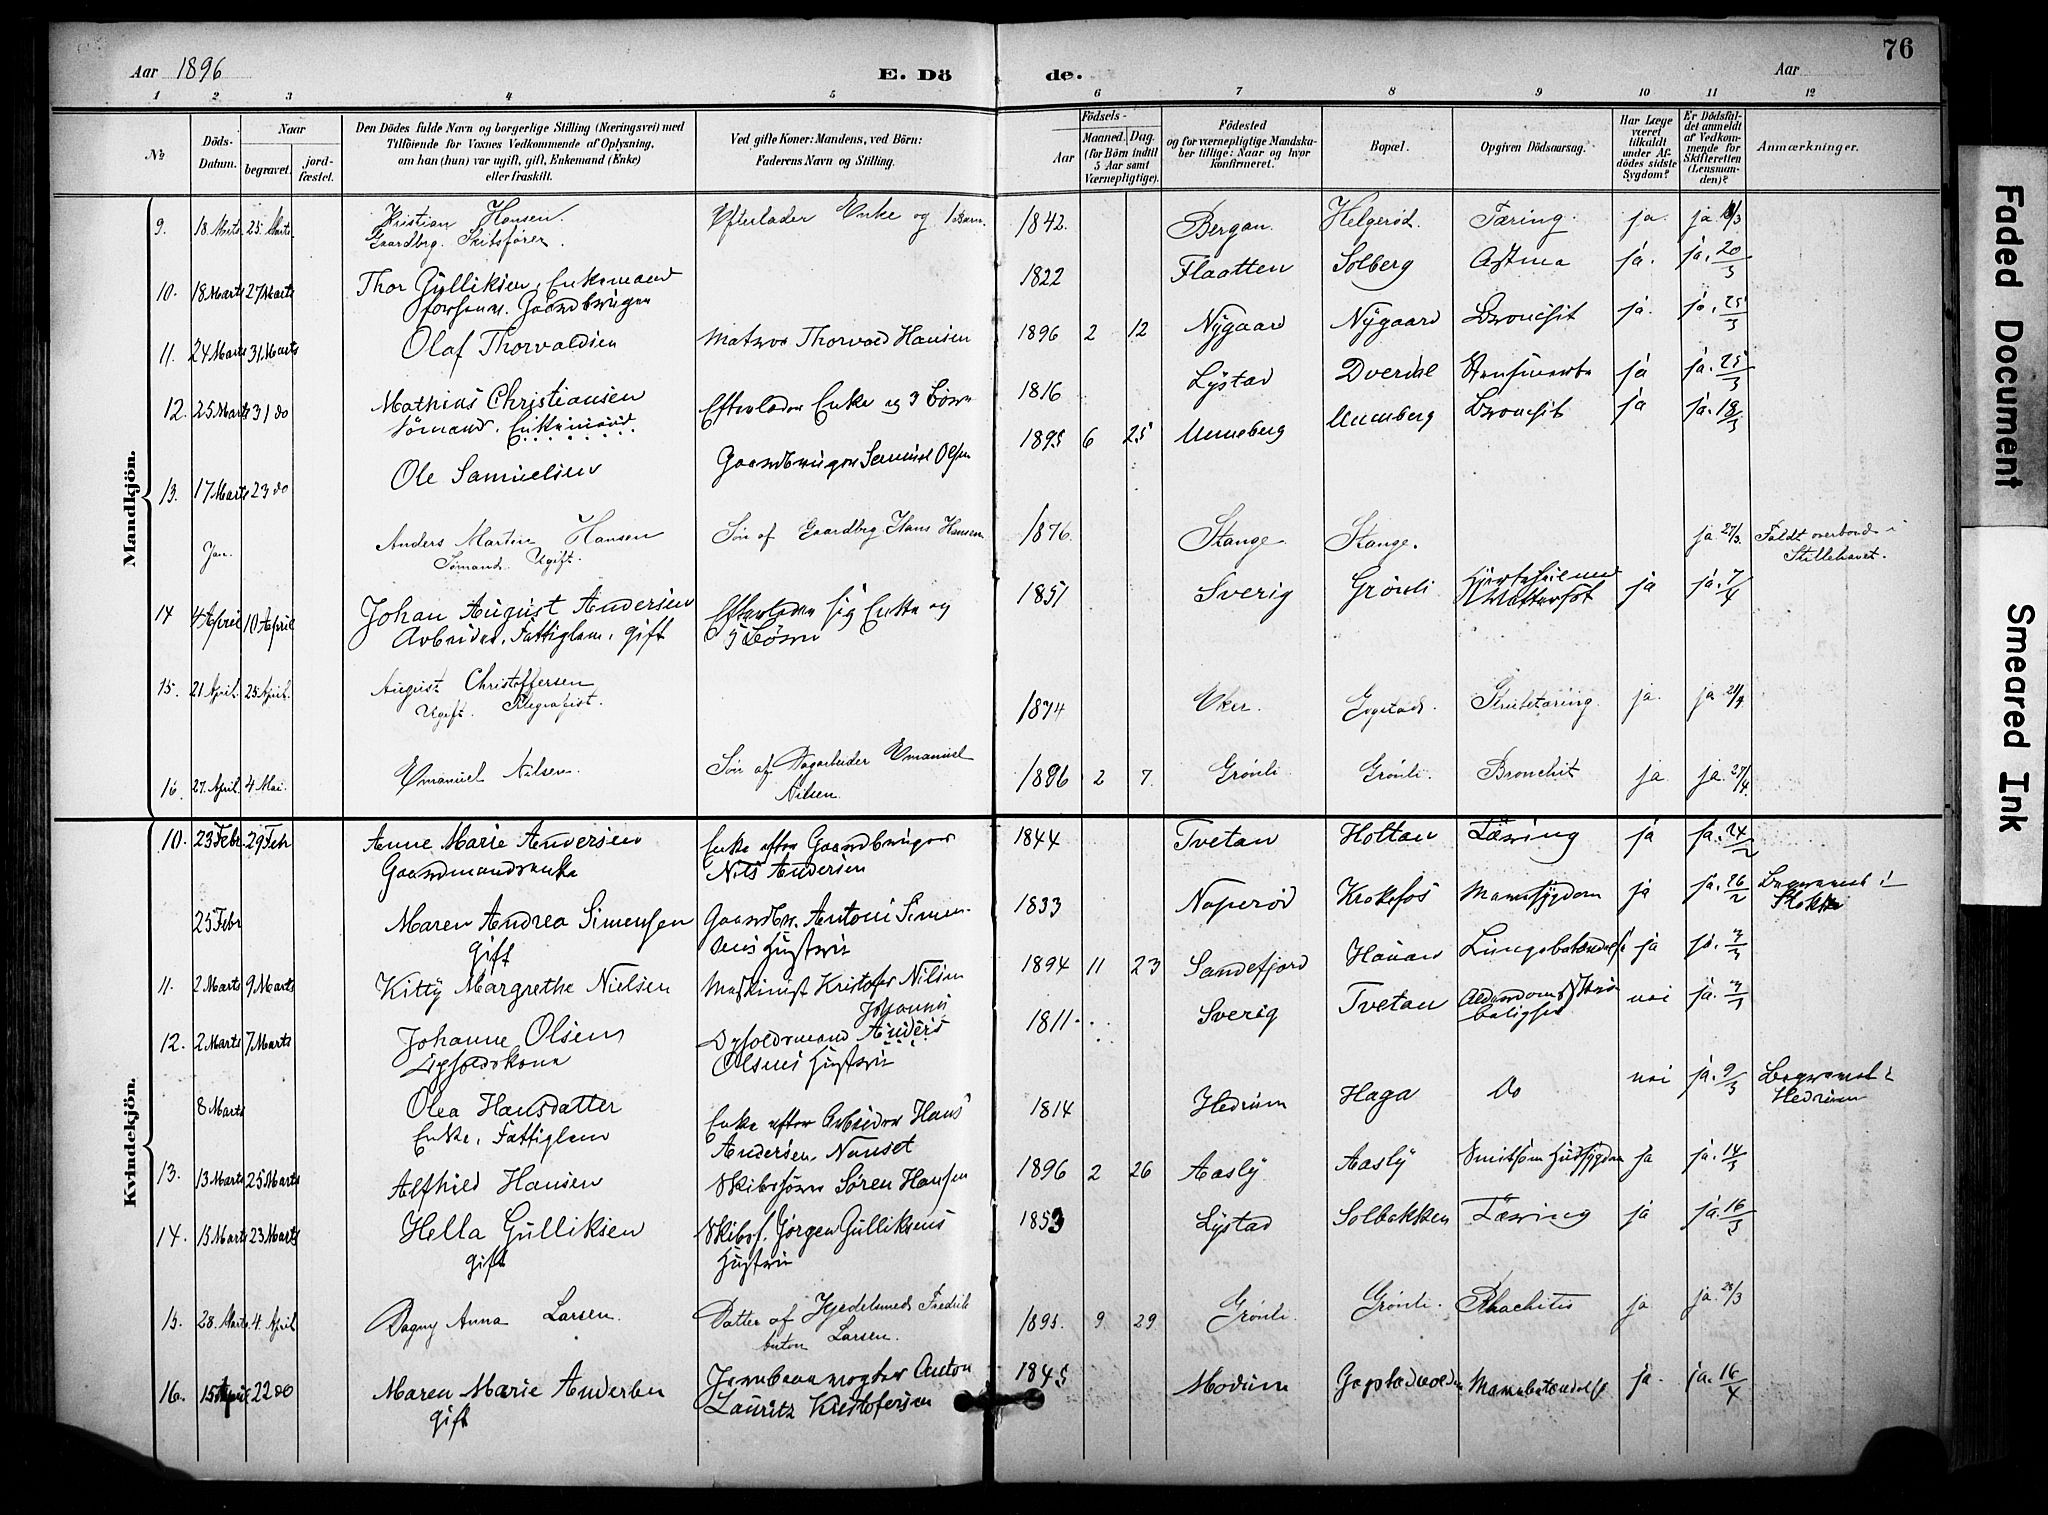 76
Aar 1896
E. Dö de.
Aar
1 2 3 4 5 6 7 8 9 10 11 12
No.
Döds-Datum.
Naar
begravet.
jord-fæstet.
Den Dödes fulde Navn og borgerlige Stilling (Næringsvei) med
Tilföiende for Voxnes Vedkommende af Oplysning,
om han (hun) var ugift, gift, Enkemand (Enke)
eller fraskilt.
Ved gifte Koner: Mandens, ved Börn:
Faderens Navn og Stilling.
Födsels-
Aar
Maaned. Dag.
(for Börn indtil
5 Aar samt
Værnepligtige).
Födested
og for værnepligtige Mandska-
ber tillige: Naar og hvor
konfirmeret.
Bopæl.
Opgiven Dödsaarsag.
Har Læge
været
tilkaldt
under Af-
dödes sidste
Sygdom?
Er Dödsfal-
det anmeldt
af Vedkom-
mende for
Skifteretten
(Lensman-
den)?
Anmærkninger.
Mandkjön.
9. 18. Mrts 25. Marts Kristian Hansen. Efterlader Enke og 1 Barn. 1842. Bergan. Helgerød. Tæring. ja. ja
Gaardbrg. Skibsfører.
10. 18 Marts 27 Marts Thor Gulliksen, Enkemand 1822 Flaatten Solberg Astma ja. ja. 20/3
forhenv. Gaardbruger
11. 24 Marts 31 Marts Olaf Thorvaldsen Matros Thorvald Hansen 1896 2 12 Nygaard Nygaard Bronchit ja. ja. 25/3
12. 25 Marts 31 do Mathias Christiansen Efterlader Enke og 3 Börn 1816 Lystad ja ja. 25/3
Sømand. Enkemand
13. 17 Marts 23 do Ole Samuelsen Gaardbruger Samuel Olsen 1895 6 25 Unneberg Unneberg Bronchit ja ja. 18/3
Jan. Anders Martin Hansen Søn af Gaardbrg. Hans Hansen 1876. Stange. Stange. ja 27/3. Faldt overbord i
Sømand. Ugift. Stillehavet.
14 4 April 10 April Johan August Andersen Efterlader sig Enke og 1851 Sverig Grönli ja ja. 7/4
Arbeider, Fattiglem, gift 5 Börn
15. 21 April. 25 April. August Christoffersen 1874 Eker. Strubetæring. ja. ja
Ugift. Telegrafist.
16. 27. April. 4 Mai. Emanuel Nilsen. Søn af Dagarbeider Emanuel 1896 2 7. Grönli. Grönli. Bronchit ja ja. 27/4.
Nilsen.
Kvindekjön.
10. 23 Febr 29 Febr Anne Marie Andersen Enke efter Gaardbruger 1844 Tvetan Holtan Tæring ja ja. 24/2
Gaardmandsenke Nils Andersen
25 Febr Maren Andrea Simensen Gaardbr. Antoni Simen- 1833 Naperød Krokefos Mavesygdom ja ja. 26/2 Begravet i
gift sens Hustru Stokke
11. 2 Marts 9 Marts Kitty Margrethe Nielsen Maskinist Kristofer Nilsen 1894 11 23 Sandefjord Hauan Lungebetændelse ja ja. 3/3
12. 2 Marts 7 Marts Johanne Olsen Opholdsmand Johannes Anders 1811. Sverig Tvetan nei ja. 3/3
Opholdskone Olsens Hustru
8 Marts Olea Hansdatter Enke efter Arbeider Hans 1814 Hedrum Haga Do nei ja. 9/3 Begravet i
Enke, Fattiglem Andersen Nanset Hedrum
13. 13 Marts 25 Marts Alfhild Hansen Skibsfører Søren Hansen 1896 2 26 Aasly Aasly Smitsom Hudsygdom ja ja. 14/3
14. 15 Marts 23 Marts Hella Gulliksen Skibsf. Jørgen Gulliksens 1853 Lystad Solbakken Tæring ja ja. 16/3
gift Hustru
15. 28. Marts. 4. April Dagny Anna Larsen. Datter af Kjedelsmed Fredrik 1895. 9. 29. Grönli. Grönli. Rhachitis ja ja. 28/3
Anton Larsen.
16. 15 April 22 do Maren Marie Andersen Jernbanevogter Anton 1845 Modum Mavebetændelse ja. ja. 16/4
gift Lauritz Kristofersen
Faded Document
Smeared Ink